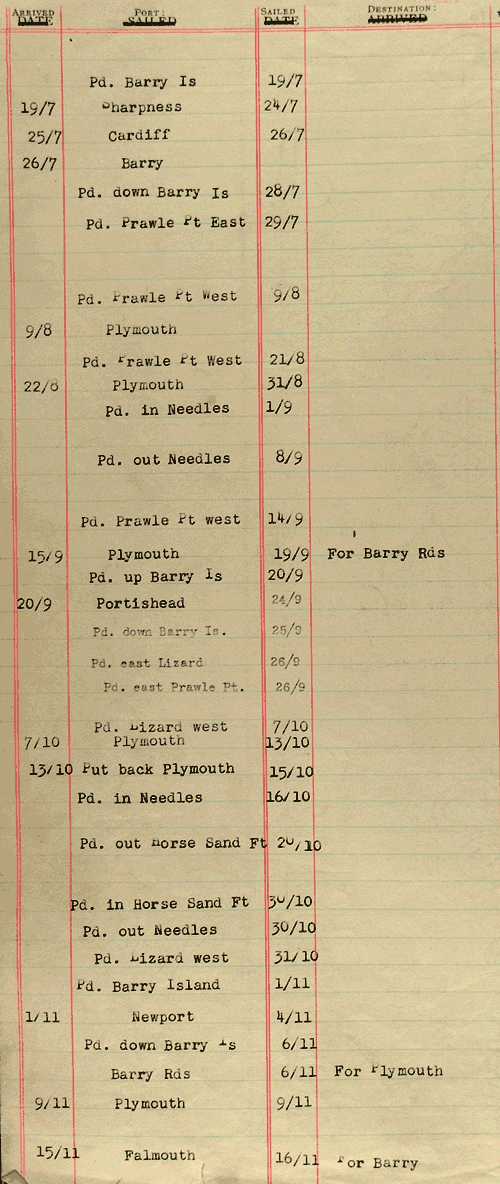 ARRIVED PORT: SAILED DESTINATION:
DATE SAILED DATE ARRIVED
Pd. Barry Is 19/7
19/7 Sharpness 24/7
25/7 Cardiff 26/7
26/7 Barry
Pd. down Barry Is 28/7
Pd. Prawle Pt East 29/7
Pd. Prawle Pt West 9/8
9/8 Plymouth
Pd. Prawle Pt West 21/8
22/8 Plymouth 31/8
Pd. in Needles 1/9
Pd. out Needles 8/9
Pd. Prawle Pt west 14/9
15/9 Plymouth 19/9 For Barry Rds
Pd. up Barry Is 20/9
20/9 Portishead 24/9
Pd. down Barry Is. 25/9
Pd. east Lizard 26/9
Pd. east Prawle Pt. 26/9
Pd. Lizard west 7/10
7/10 Plymouth 13/10
13/10 Put back Plymouth 15/10
Pd. in Needles 16/10
Pd. out Horse Sand Ft 20/10
Pd. in Horse Sand Ft 30/10
Pd. out Needles 30/10
Pd. Lizard west 31/10
Pd. Barry Island 1/11
1/11 Newport 4/11
Pd. down Barry Is 6/11
Barry Rds 6/11 For Plymouth
9/11 Plymouth 9/11
15/11 Falmouth 16/11 For Barry